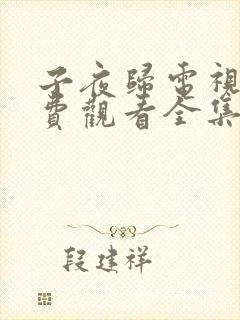 子夜歸電視
費觀看全集
段建祥